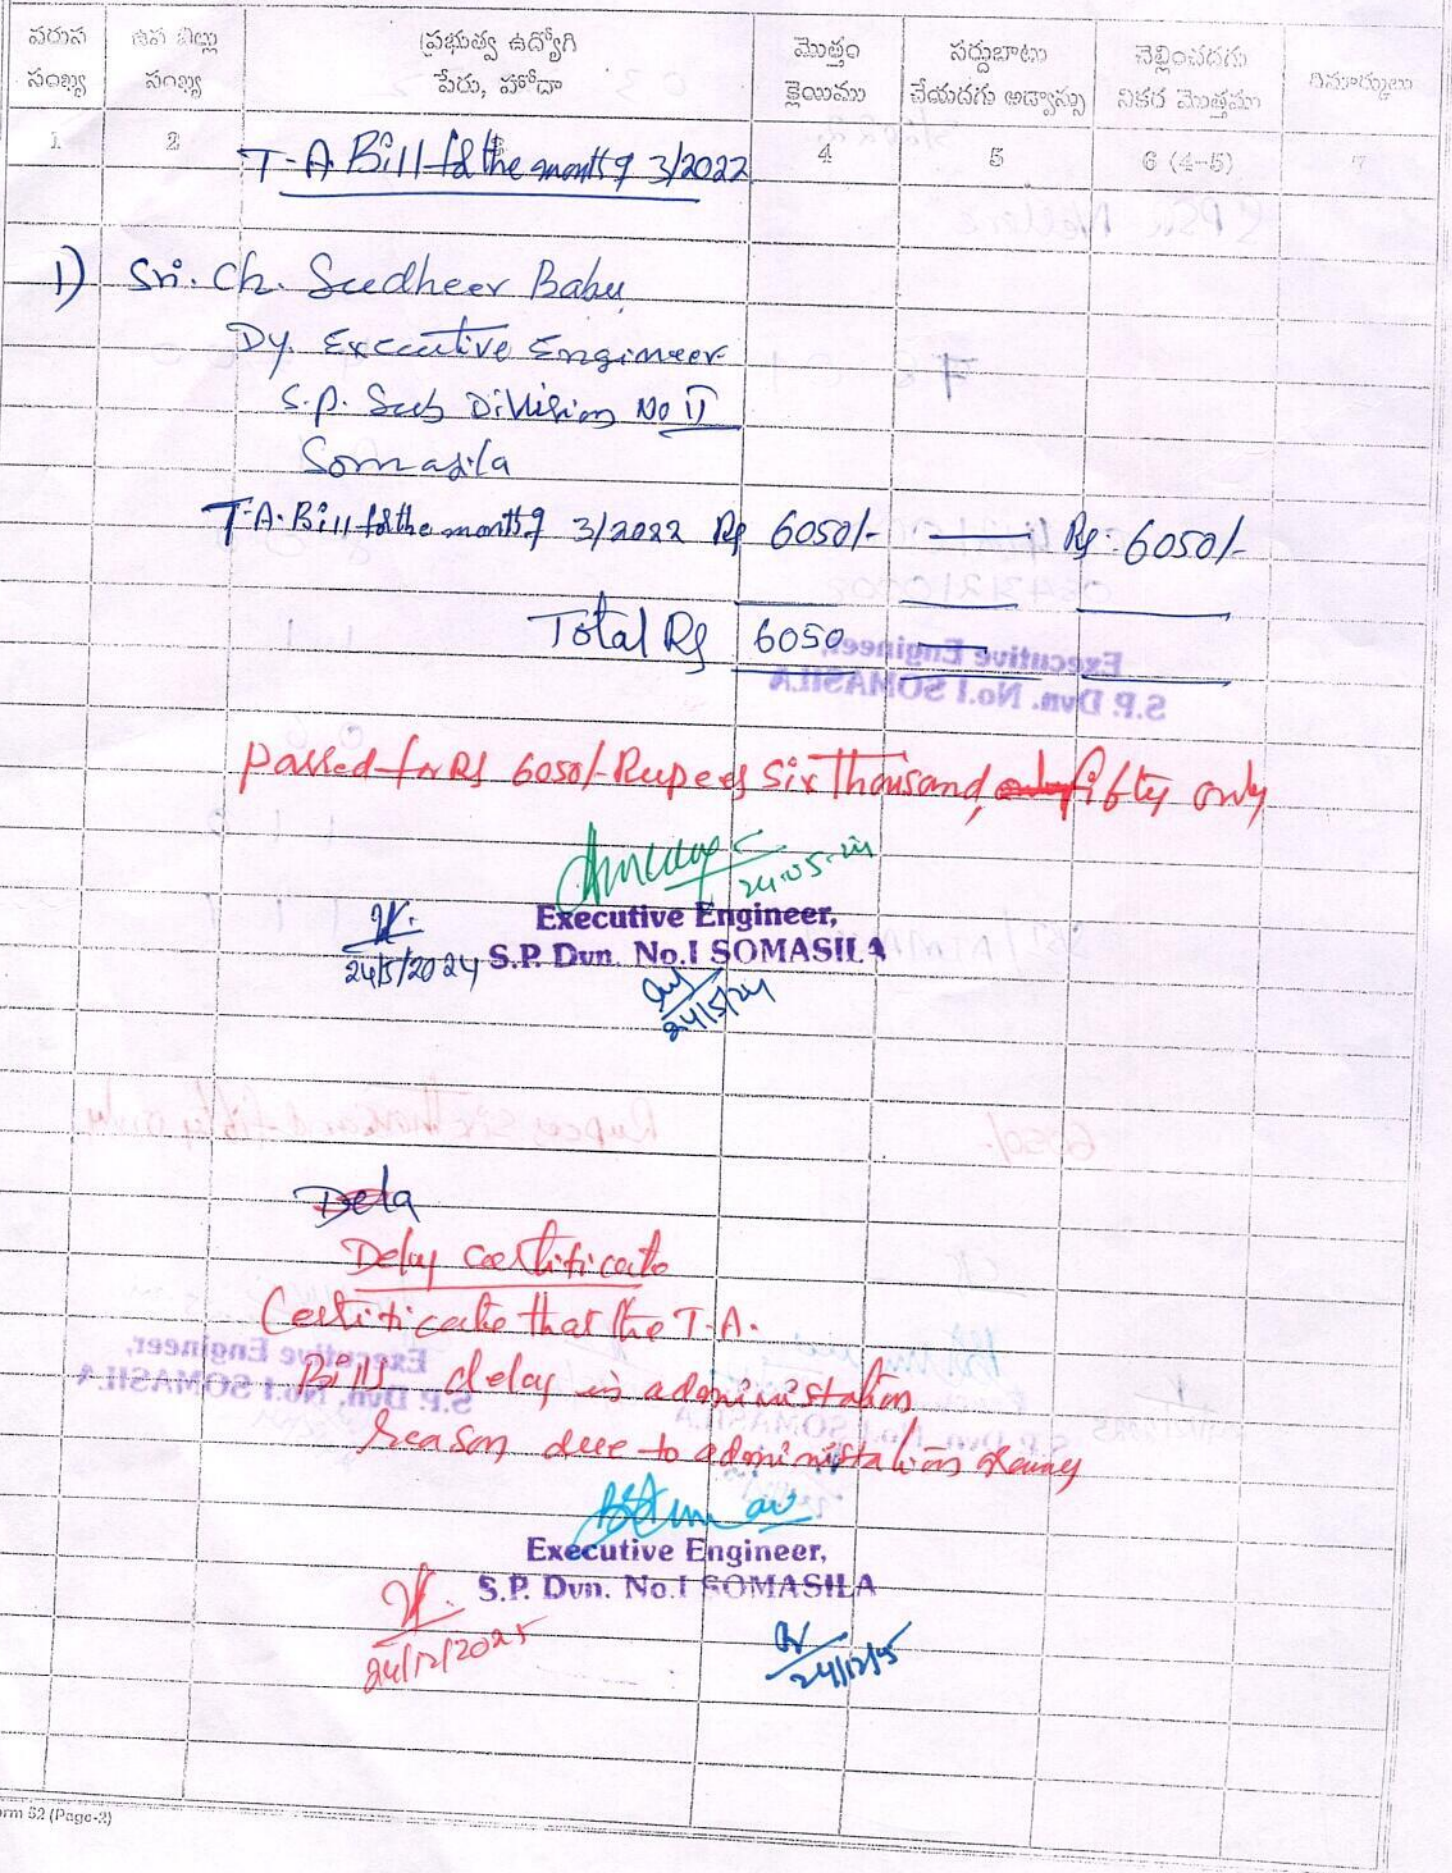 వరుస సంఖ్య	ఉప బిల్లు సంఖ్య	ప్రభుత్వ ఉద్యోగి పేరు, హోదా	మొత్తం క్లెయిము	సర్దుబాటు చేయదగు అడ్వాన్సు	చెల్లించదగు నికర మొత్తము	రిమార్కులు
1	2	4	5	6 (4-5)	7
T-A. Bill for the month of 3/2022
1) Sri. Ch. Sudheer Babu
Dy. Executive Engineer
S.P. Sub Division No II
Somasila
T-A. Bill for the month of 3/2022 Rs 6050/- — Rs. 6050/-
Total Rs 6050 —
Passed for Rs 6050/- Rupees Six Thousand, fifty only
24.05.
Executive Engineer,
24/5/2024 S.P. Dvn. No.I SOMASILA
24/5/24
Dela
Delay certificate
Certificate that the T-A.
Bills delay is administation
reason due to administation
Executive Engineer,
S.P. Dvn. No.I SOMASILA
24/12/2025
24/12/25
orm 52 (Page-2)